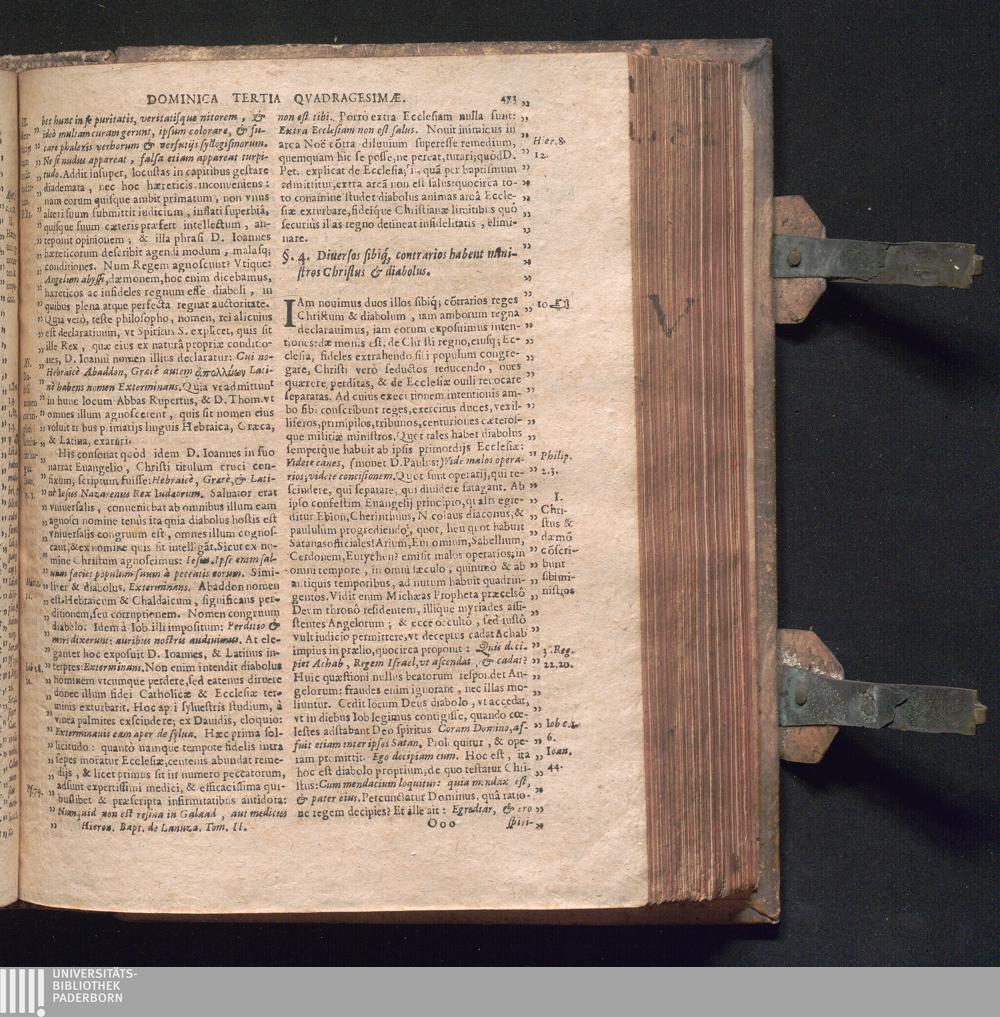 DOMINICA TERTIA QVADRAGESIMÆ. 473
bet hunc in se puritatis, veritatisque nitorem, &
ideò multam curam gerunt, ipsum colorare, & fu-
care phaleris verborum & versutijs syllogismorum.
Ne si nudus appareat, falsa etiam appareat turpi-
tudo. Addit insuper, locustas in capitibus gestare
diademata, nec hoc hæreticis inconueniens:
nam eorum quisque ambit primatum, non vnus
alteri suum submittit iudicium, inflati superbiâ,
quisque suum cæteris præfert intellectum, an-
teponit opinionem; & illa phrasi D. Ioannes
hæreticorum describit agendi modum, malasq;
conditiones. Num Regem agnoscunt? Vtique:
Angelum abyssi, dæmonem, hoc enim dicebamus,
hæreticos ac infideles regnum esse diaboli, in
quibus plena atque perfecta regnat auctoritate.
Quia verò, teste philosopho, nomen, rei alicuius
est declaratiuum, vt Spiritus S. explicet, quis sit
ille Rex, quæ eius ex naturâ propriæ conditio-
nes, D. Ioanni nomen illius declaratur: Cui no-
Hebraicè Abaddon, Græcè autem ἀπολλύων Lati-
nè habens nomen Exterminans. Quia vt admittunt
in hunc locum Abbas Rupertus, & D. Thom. vt
omnes illum agnoscerent, quis sit nomen eius
voluit tribus primatijs linguis Hebraica, Græca,
& Latina, exarari.
His consonat quòd idem D. Ioannes in suo
narrat Euangelio, Christi titulum cruci con-
fixum, scriptum fuisse: Hebraicè, Græcè, & Lati-
nè Iesus Nazarenus Rex Iudæorum. Saluator erat
vniuersalis, conueniebat ab omnibus illum eam
agnosci nomine tenus ita quia diabolus hostis est
vniuersalis congruum est, omnes illum cognos-
cant, & ex nomine quis sit intelligāt. Sicut ex no-
mine Christum agnoscimus: Iesus. Ipse enim sal-
uum faciet populum suum à peccatis eorum. Simi-
liter & diabolus. Exterminans. Abaddon nomen
est Hebraicum & Chaldaicum, significans per-
ditionem, seu corruptionem. Nomen congruum
diabolo. Idem à Iob illi impositum: Perditio &
mors dixerunt: auribus nostris audiuimus. At ele-
ganter hoc exposuit D. Ioannes, & Latinus in-
terpres: Exterminans. Non enim intendit diabolus
hominem vtcumque perdere, sed eatenus diruere
donec illum fidei Catholicæ & Ecclesiæ ter-
minis exturbarit. Hoc apri syluestris studium, à
vinea palmites exscindere; ex Dauidis, eloquio:
Exterminauit eam aper de sylua. Hæc prima sol-
licitudo: quantò namque tempote fidelis intra
sepes moratur Ecclesiæ, centenis abundat reme-
dijs, & licet primus sit in numero peccatorum,
adsunt expertissimi medici, & efficacissima qui-
buslibet & præscripta infirmitatibus antidota:
Nunquid non est resina in Galaad, aut medicus
Hieron. Bapt. de Lanuza. Tom. II.
non est tibi. Porrò extra Ecclesiam nulla sunt:
Extra Ecclesiam non est salus. Nouit inimicus in
arca Noë cōtra diluuium superesse remedium,
quemquam hic se posse, ne pereat, tutari; quòd D.
Pet. explicat de Ecclesia; in quā per baptismum
admittitur, extra arcā non est salus: quocirca to-
to conamine studet diabolus animas arcâ Eccle-
siæ exturbare, fideique Christianæ limitibus quò
securiùs illas regno detineat infidelitatis, elimi-
nare.
§. 4. Diuersos sibiq́, contrarios habent mini-
stros Christus & diabolus.
IAm nouimus duos illos sibiq; cōtrarios reges
Christum & diabolum, iam amborum regna
declarauimus, iam eorum exposuimus inten-
tiones: dæmonis est, de Christi regno, eiusq; Ec-
clesia, fideles extrahendo sibi populum congre-
gare, Christi verò seductos reducendo, oues
quærere perditas, & de Ecclesiæ ouili reuocare
separatas. Ad cuius executionem intentionis am-
bo sibi conscribunt reges, exercitus duces, vexil-
liferos, primipilos, tribunos, centuriones cæteros-
que militiæ ministros. Quot tales habet diabolus
semperque habuit ab ipsis primordijs Ecclesiæ:
Videte canes, (monet D. Paulus:) Vide malos opera-
rios, videte concisionem. Quot sunt operarij, qui re-
scindere, qui separare, qui diuidere satagant. Ab
ipso confestim Euangelij principio, qualis egre-
ditur Ebion, Cherinthius, Nicolaus diaconus, &
paululum progrediendo, quot, heu quot habuit
Satanas officiales! Arium, Eunomium, Sabellium,
Cerdonem, Eutychen? emisit malos operarios; in
omni tempore, in omni sæculo, quinimò & ab
antiquis temporibus, ad nutum habuit quadrin-
gentos. Vidit enim Michæas Propheta præcelsò
Deum thronò residentem, illique myriades assi-
stentes Angelorum; & ecce occultò, sed iustò
vult iudicio permittere, vt deceptus cadat Achab
impius in prælio, quocirca proponit: Quis deci-
piet Achab, Regem Israel, vt ascendat, & cadat?
Huic quæstioni nullus beatorum respondet An-
gelorum: fraudes enim ignorant, nec illas mo-
liuntur. Cedit locum Deus diabolo, vt accedat,
vt in diebus Iob legimus contigisse, quando cœ-
lestes adstabant Deo spiritus Coram Domino, af-
fuit etiam inter ipsos Satan, Proloquitur, & ope-
ram promittit. Ego decipiam eum. Hoc est, ita
hoc est diabolo proprium, de quo testatur Chri-
stus: Cum mendacium loquitur: quia mendax est,
& pater eius. Percunctatur Dominus, quâ ratio-
ne regem decipies? Et ille ait: Egrediar, & ero
Ooo spiri-
Hier. 8.
12.
10
Philip.
2.3.
I.
Chri-
stus &
dæmō
cōscri-
bunt
sibimi-
nistros
3. Reg.
22.20.
Iob c.1.
6.
Ioan.
44.
Pf. 79.
V
UNIVERSITÄTS-
BIBLIOTHEK
PADERBORN